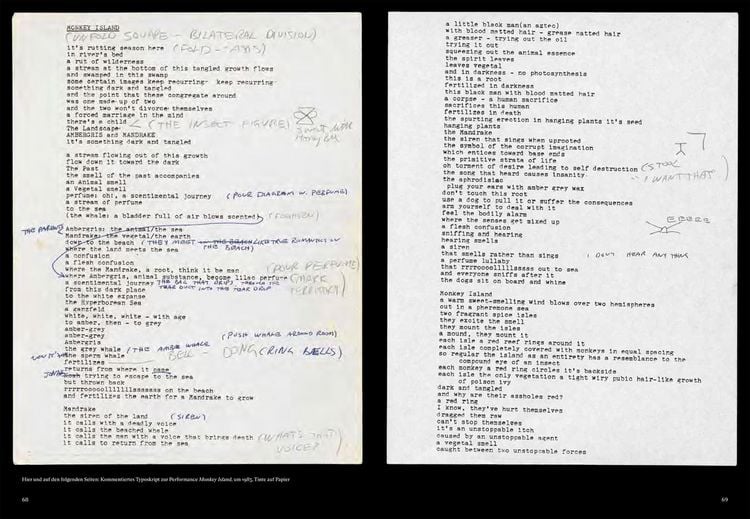 MONKEY ISLAND
(UNFOLD SQUARE - BILATERAL DIVISION)
it's rutting season here (FOLD - AXIS)
in river's bed
a rut of wilderness
a stream at the bottom of this tangled growth flows
and swamped in this swamp
some certain images keep recurring- keep recurring-
something dark and tangled
and the point that these congregate around
was one made up of two
and the two won't divorce themselves
a forced marriage in the mind
there's a child (THE INSECT FIGURE)
The Landscape
AMBERGRIS and MANDRAKE
it's something dark and tangled
a stream flowing out of this growth
flow down it toward the dark
The Past
the smell of the past accompanies
an Animal smell
a Vegetal smell
perfume: oh!, a scentimental journey (POUR DIAGRAM W. PERFUME)
a stream of perfume
to the sea
(the whale: a bladder full of air blows scented) (FOGHORN)
THE PARENTS Ambergris: the animal/the sea
Mandrake: the vegetal/the earth
down to the beach (THEY MEET
THE BEACH)
where the land meets the sea
a confusion
a flesh confusion
where the Mandrake, a root, think it be man (POUR PERFUME)
where Ambergris, animal substance, become lilac perfume (MARK TERRITORY)
a scentimental journey THE BAR THAT DRIPS THROUGH THE
from this dark place TEAR DUCT INTO THE TEAR DROP
to the white expanse
the Hyperborean Sea
a ganzfeld
white, white, white - with age
to amber, then - to grey
amber-grey
amber-gris (PUSH WHALE AROUND ROOM)
ambergris
the grey whale (THE AMBER WHALE
the sperm whale BELL - DONG (RING BELLS)
fertilizes
returns from where it came
JONAH trying to escape to the sea
but thrown back
rrrrrooooollllllssssss on the beach
and fertilizes the earth for a Mandrake to grow
Mandrake
the siren of the land (SIREN)
it calls with a deadly voice
it calls the beached whale
it calls the man with a voice that brings death (WHAT'S THAT VOICE?)
it calls to return from the sea
Hier und auf den folgenden Seiten: Kommentiertes Typoskript zur Performance Monkey Island, um 1985, Tinte auf Papier
68
a little black man(an aztec)
with blood matted hair - grease matted hair
a greaser - trying out the oil
trying it out
squeezing out the animal essence
the spirit leaves
leaves vegetal
and in darkness - no photosynthesis
this is a root
fertilized in darkness
this black man with blood matted hair
a corpse - a human sacrifice
sacrifices this human
fertilizes in death
the spurting erection in hanging plants it's seed
hanging plants
the Mandrake
the siren that sings when uprooted
the symbol of the corrupt imagination
which entices toward base ends
the primitive strata of life
oh torment of desire leading to self destruction (STOOL
the song that heard causes insanity. - I WANT THAT.)
the aphrodisiac
plug your ears with amber grey wax
don't touch this root
use a dog to pull it or suffer the consequences
arm yourself to deal with it
feel the bodily alarm
where the senses get mixed up
a flesh confusion
sniffing and hearing
hearing smells
a siren
that smells rather than sings I DON'T HEAR ANYTHING
a perfume lullaby
that rrrroooollllssssss out to sea
and everyone sniffs after it
the dogs sit on board and whine
Monkey Island
a warm sweet-smelling wind blows over two hemispheres
out in a pheremone sea
two fragrant spice isles
they excite the smell
they mount the isles
a mound, they mount it
each isle a red reef rings around it
each isle completely covered with monkeys in equal spacing
so regular the island as an entirety has a resemblance to the
compound eye of an insect
each monkey a red ring circles it's backside
each isle the only vegetation a tight wiry pubic hair-like growth
of poison ivy
dark and tangled
and why are their assholes red?
a red ring
I know, they've hurt themselves
dragged them raw
can't stop themselves
it's an unstoppable itch
caused by an unstoppable agent
a vegetal smell
caught between two unstoppable forces
69